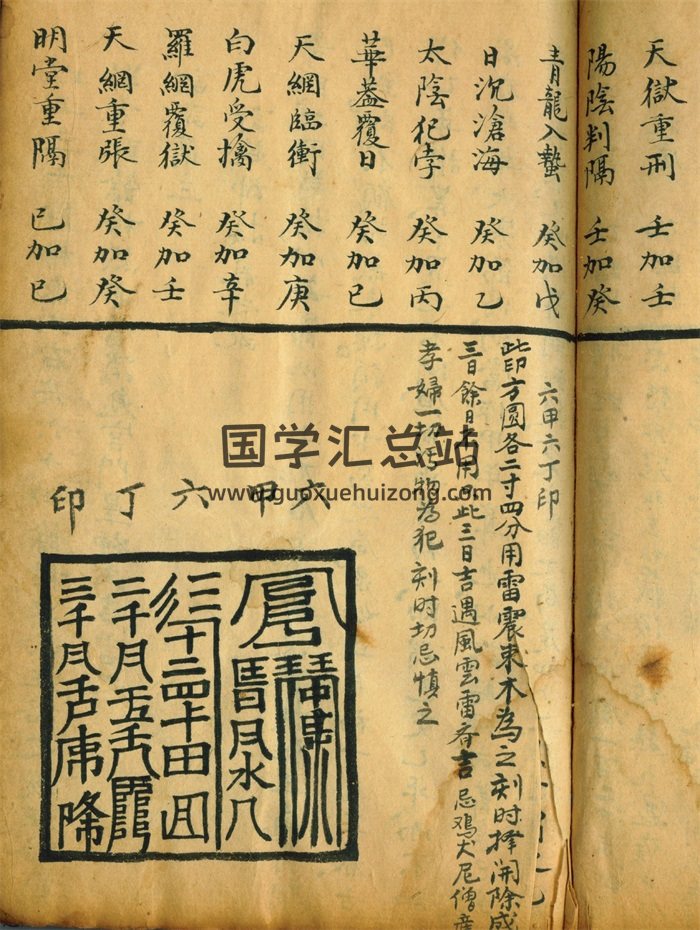 天獄重刑 壬加壬
陽陰判隔 壬加癸
青龍入蟄 癸加戊
日沉滄海 癸加乙
太陰犯悖 癸加丙
華蓋覆日 癸加巳
天網臨衝 癸加庚
白虎受擒 癸加辛
羅網覆獄 癸加壬
天網重張 癸加癸
明堂重隔 巳加巳
六甲六丁印
此印方圓各二寸四分用雷震棗木為之刻时擇開除成
三日餘日不用此三日吉遇風雲雷香吉忌鸡犬尼僧産
孝婦一切污物為犯刻时切忌慎之
六甲六丁印
国学汇总站
www.guoxuehuizong.com